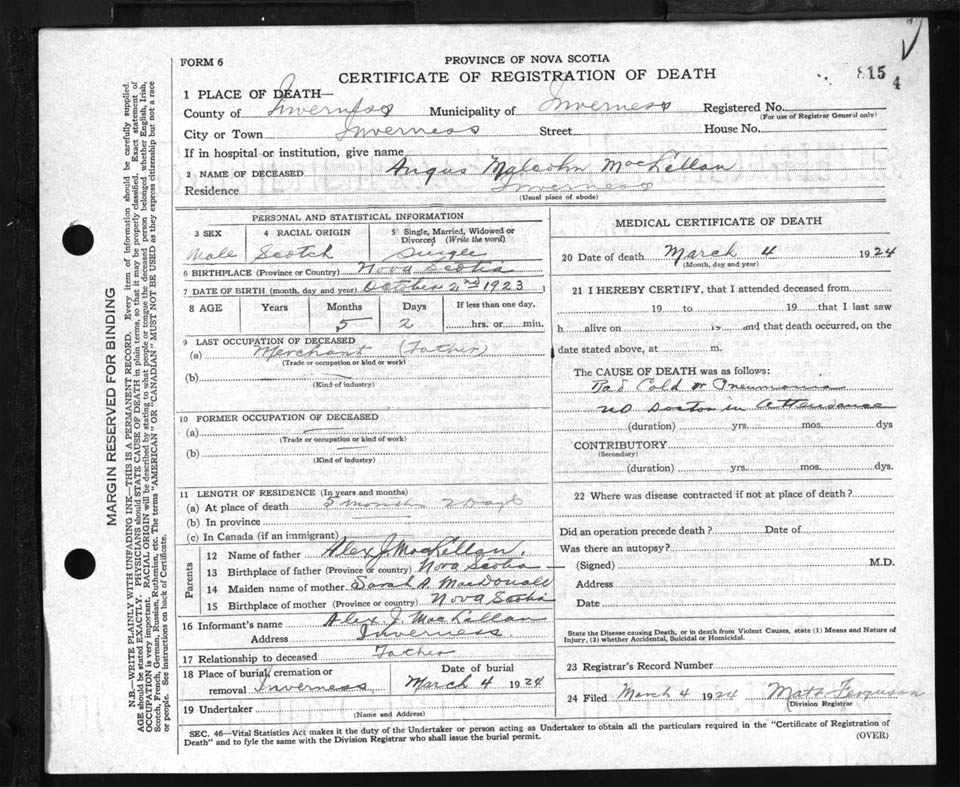 FORM 6
PROVINCE OF NOVA SCOTIA
CERTIFICATE OF REGISTRATION OF DEATH
815
4
1 PLACE OF DEATH—
County of Inverness Municipality of Inverness Registered No.
(For use of Registrar General only)
City or Town Inverness Street House No.
If in hospital or institution, give name
2 NAME OF DECEASED Angus Malcolm MacLellan
Residence Inverness
(Usual place of abode)
PERSONAL AND STATISTICAL INFORMATION
3 SEX 4 RACIAL ORIGIN 5 Single, Married, Widowed or Divorced (Write the word)
Male Scotch Single
6 BIRTHPLACE (Province or Country) Nova Scotia
7 DATE OF BIRTH (month, day and year) October 2nd 1923
8 AGE Years Months Days If less than one day,
5 2 hrs. or min.
9 LAST OCCUPATION OF DECEASED
(a) Merchant (Father)
(Trade or occupation or kind or work)
(b)
(Kind of industry)
10 FORMER OCCUPATION OF DECEASED
(a)
(Trade or occupation or kind of work)
(b)
(Kind of industry)
11 LENGTH OF RESIDENCE (In years and months)
(a) At place of death 5 months 2 days
(b) In province
(c) In Canada (if an immigrant)
Parents
12 Name of father Alex J MacLellan.
13 Birthplace of father (Province or country) Nova Scotia
14 Maiden name of mother Sarah A. MacDonald
15 Birthplace of mother (Province or country) Nova Scotia
16 Informant's name Alex J. MacLellan
Address Inverness.
17 Relationship to deceased Father
18 Place of burial, cremation or Date of burial
removal Inverness March 4 1924
19 Undertaker
(Name and Address)
MEDICAL CERTIFICATE OF DEATH
20 Date of death March 4 1924
(Month, day and year)
21 I HEREBY CERTIFY, that I attended deceased from
19 to 19 that I last saw
h alive on 19 and that death occurred, on the
date stated above, at m.
The CAUSE OF DEATH was as follows:
Bad Cold or Pneumonia
no Doctor in Attendance
(duration) yrs. mos. dys
CONTRIBUTORY
(Secondary)
(duration) yrs. mos. dys.
22 Where was disease contracted if not at place of death?
Did an operation precede death? Date of
Was there an autopsy?
(Signed) M.D.
Address
Date
State the Disease causing Death, or in death from Violent Causes, state (1) Means and Nature of
Injury, (2) whether Accidental, Suicidal or Homicidal.
23 Registrar's Record Number
24 Filed March 4 1924 Ferguson
(Division Registrar
SEC. 46—Vital Statistics Act makes it the duty of the Undertaker or person acting as Undertaker to obtain all the particulars required in the "Certificate of Registration of
Death" and to fyle the same with the Division Registrar who shall issue the burial permit.
(OVER)
MARGIN RESERVED FOR BINDING
N.B.—WRITE PLAINLY WITH UNFADING INK—THIS IS A PERMANENT RECORD. Every item of information should be carefully supplied.
AGE should be stated EXACTLY. PHYSICIANS should STATE CAUSE OF DEATH in plain terms, so that it may be properly classified. Exact statement of
OCCUPATION is very important. RACIAL ORIGIN will be described by stating to what people or tongue the deceased person belonged whether English, Irish,
Scotch, French, German, Russian, Ruthenian, etc. The terms "AMERICAN" or "CANADIAN" MUST NOT BE USED as they express citizenship but not a race
or people. See instructions on back of Certificate.